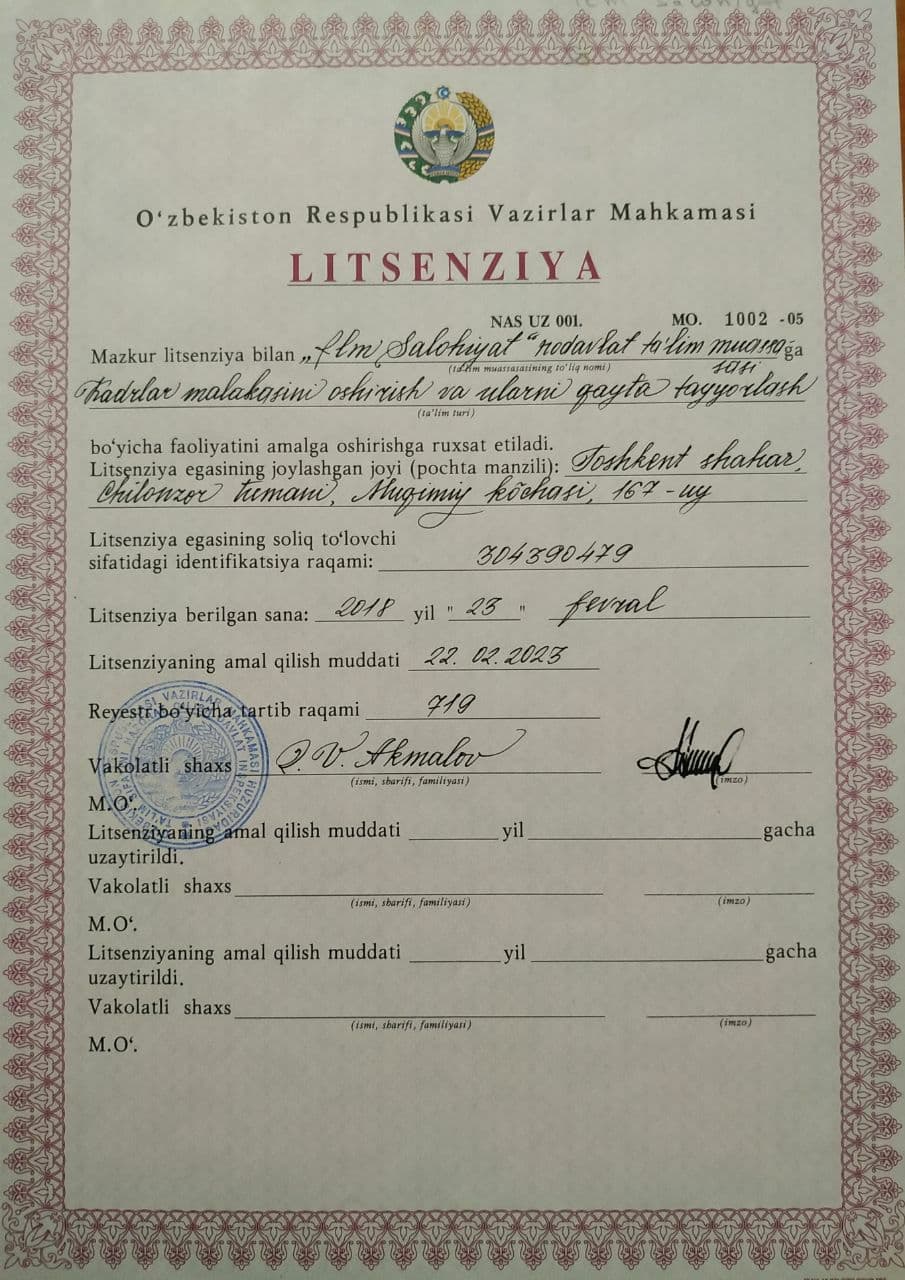 O‘zbekiston Respublikasi Vazirlar Mahkamasi
LITSENZIYA
NAS UZ 001. MO. 1002 -05
Mazkur litsenziya bilan „Ilm Salohiyat“ nodavlat ta'lim muassasasiga
(ta'lim muassasatining to'liq nomi)
Kadrlar malakasini oshirish va ularni qayta tayyorlash
(ta'lim turi)
bo‘yicha faoliyatini amalga oshirishga ruxsat etiladi.
Litsenziya egasining joylashgan joyi (pochta manzili): Toshkent shahar,
Chilonzor tumani, Muqimiy ko'chasi, 167-uy
Litsenziya egasining soliq to‘lovchi
sifatidagi identifikatsiya raqami: 304390479
Litsenziya berilgan sana: 2018 yil " 23 " fevral
Litsenziyaning amal qilish muddati 22. 02. 2023
Reyestr bo‘yicha tartib raqami 719
Vakolatli shaxs V. Akmalov
(ismi, sharifi, familiyasi) (imzo)
M.O‘.
Litsenziyaning amal qilish muddati ________ yil ____________________ gacha
uzaytirildi.
Vakolatli shaxs
(ismi, sharifi, familiyasi) (imzo)
M.O‘.
Litsenziyaning amal qilish muddati ________ yil ____________________ gacha
uzaytirildi.
Vakolatli shaxs
(ismi, sharifi, familiyasi) (imzo)
M.O‘.